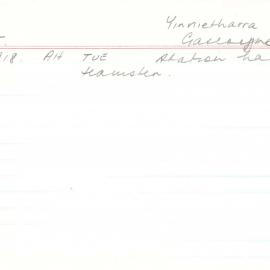 Yinnietharra
Gascoyne
918. AH TUE Station ha
teamster.